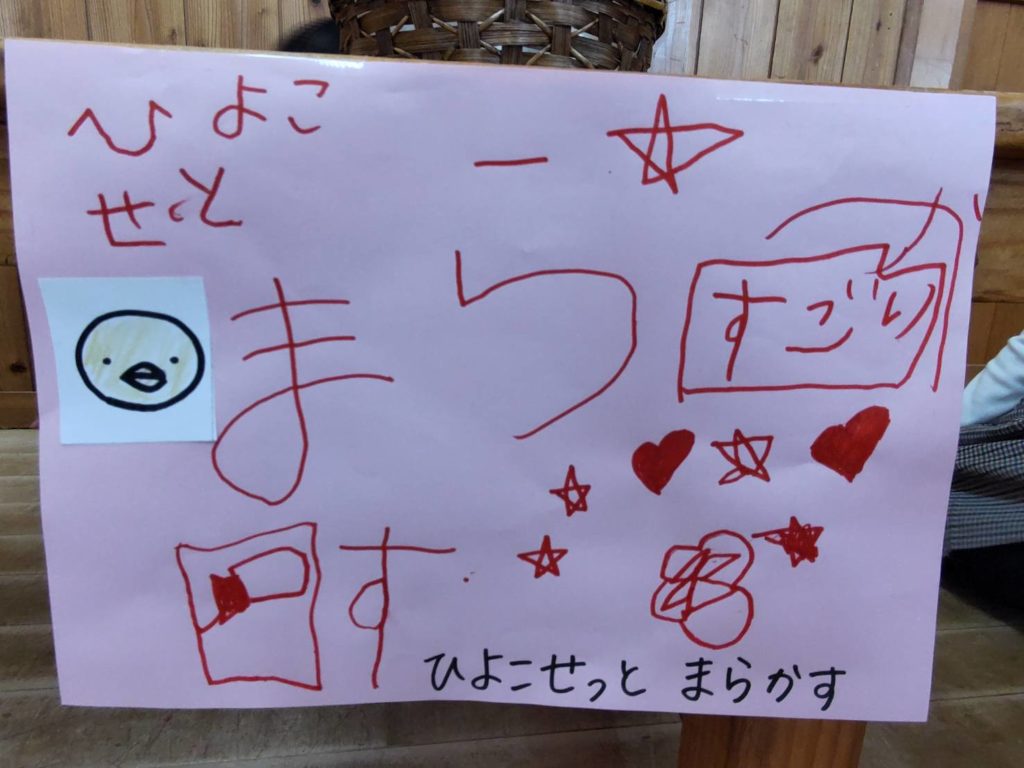 ひよこ
せっと
まらか
すごり
す
ひよこせっと まらかす